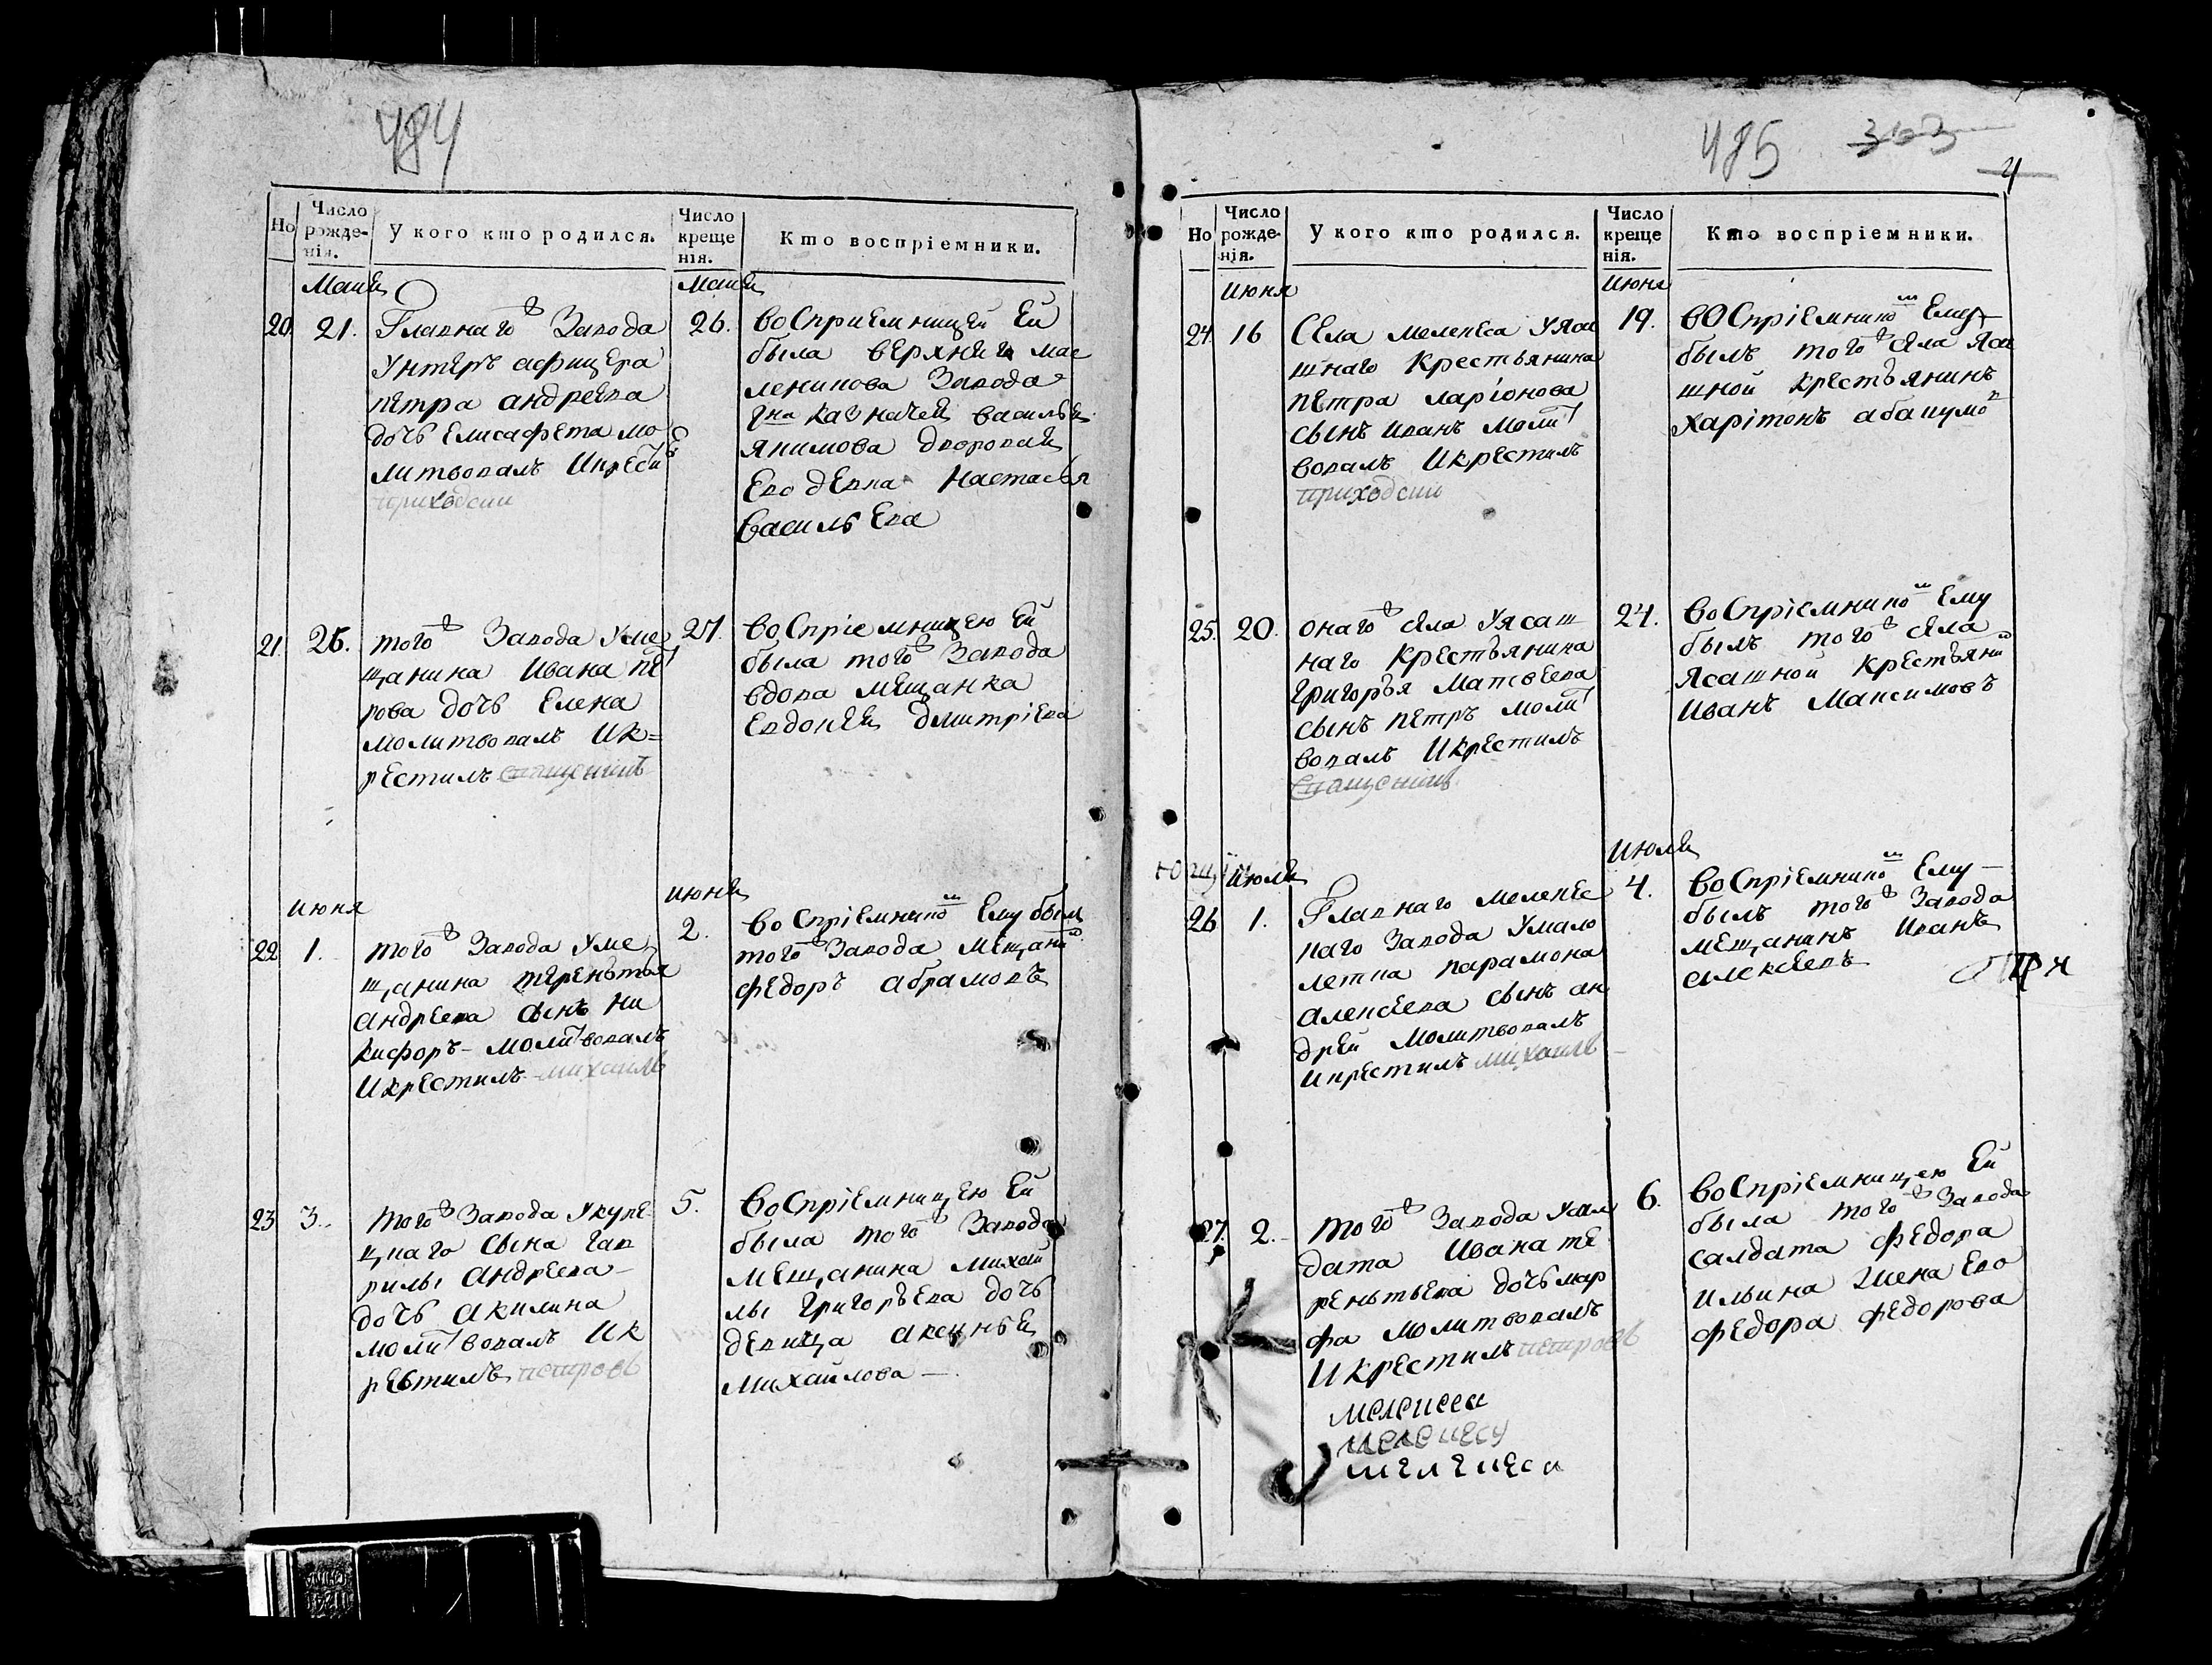 484
Но
Число рожденія.
У кого кто родился.
Число крещенія.
Кто воспріемники.
Маия
Маия
20. 21.
Главнаго Завода
Унтеръ афицера
петра андреева
дочь Елисафета мо
литвовалъ Икрести
приходски
26.
воСприемницей Ей
была верхняго мае
ленинова Завода
казначея василья
якимова дворовая
Его девка Настасья
василь Ева
21. 26.
того Завода Уме
щанина Ивана пе
рова дочь Елена
молитвовалъ Ик=
рестилъ священникъ
27.
воСпріемницею Ей
была того Завода
вдова мещанка
Евдокея дмитріева
июня
июня
22. 1.
того Завода Уме
щанина терентья
андреева сынъ ни
кифоръ - молитвовалъ
Икрестилъ михаилъ
2.
во Спріемнико Ему былъ
того Завода мещани
федоръ абрамовъ
23. 3.
того Завода Укупе
цнаго сына гав
рилы андреева
дочь акилина
молитвовалъ Ик
рестилъ петровъ
5.
воСпріемницею Ей
была того Завода
мещанина михаи
лы григорьева дочь
девица аксинья
михайлова
485 363
4
Но
Число рожденія.
У кого кто родился.
Число крещенія.
Кто воспріемники.
июня
июня
24. 16
Села мелекеса Уяса
шнаго крестьянина
петра ларіонова
сынъ иванъ молит
вовалъ Икрестилъ
приходски
19.
воСпріемнико Ему
былъ того села яса
шной крестьянинъ
харітонъ абакумо
25. 20.
онаго села Уясаш
наго крестьянина
григорья матвеева
сынъ петръ молит
вовалъ Икрестилъ
священникъ
24.
воСпріемнико Ему
былъ того села
ясашной крестьяни
иванъ максимовъ
июля
июля
26. 1.
Главнаго мелекес
каго Завода Умало
летка парамона
алексеева сынъ ан
дрей молитвовалъ
икрестилъ михаилъ
4.
воСпріемнико Ему
былъ того Завода
мещанинъ иванъ
алексеевъ
27. 2.
того Завода Усал
дата ивана те
рентьева дочь мар
фа молитвовалъ
Икрестилъ петровъ
6.
воСпріемницею Ей
была того Завода
салдата федора
ильина жена Его
федора федорова
мелекеса
мелекесу
мелекеса